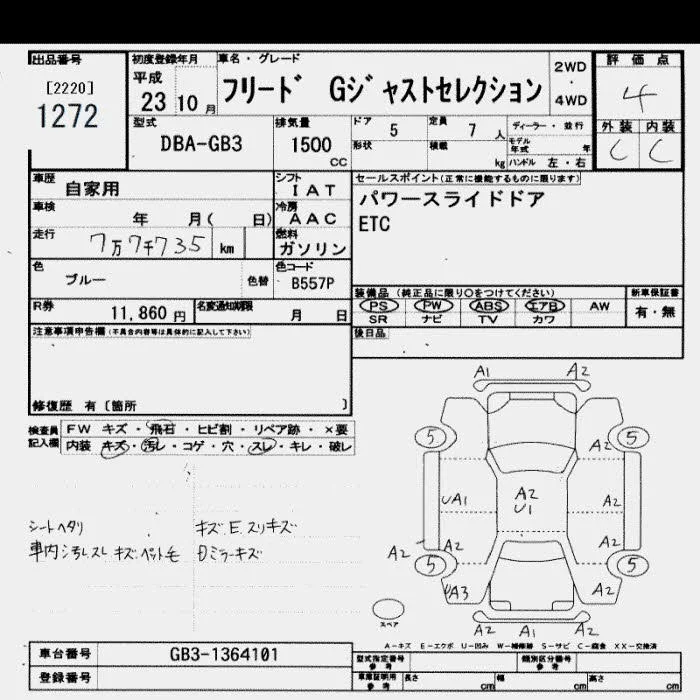 出品番号
[2220]
1272
初度登録年月
平成
23 10 月
車名・グレード
フリード Gジャストセレクション
2WD
・
4WD
評価点
4
外装 内装
C C
型式
DBA-GB3
排気量
1500
CC
ドア
5
定員
7 人
ディーラー・並行
形状
積載
kg
モデル年式 年
ハンドル 左・右
車歴
自家用
シフト
IAT
セールスポイント(正常に機能するものに限ります)
パワースライドドア
ETC
車検
年 月( 日)
冷房
AAC
走行
7万7千735 km
燃料
ガソリン
色
ブルー
色替
色コード
B557P
装備品 (純正品に限り○をつけてください)
PS PW ABS エアB AW
SR ナビ TV カワ
新車保証書
有・無
R券
11,860 円
名変通知期限
月 日
後日品
注意事項申告欄(不具合内容等は具体的に記入して下さい)
修復歴 有〔箇所 〕
検査員
記入欄
FW キズ・飛石・ヒビ割・リペア跡・×要
内装 キズ・汚レ・コゲ・穴・スレ・キレ・破レ
シートヘタリ
車内汚レスレ キズ.ペット毛
キズ.E.スリキズ
Dミラーキズ
A1 A2
5 5
A2
UA1
A2
U1
A2
A2 A2
A2
5 5
UA3
A2
A2 A1 A2
スペア
A－キズ E－エクボ U－凹み W－補修跡 S－サビ C－腐食 XX－交換済
車台番号
GB3-1364101
登録番号
型式指定番号
参考
類別区分番号
参考
車庫証明用
参考
長さ cm
幅 cm
高さ cm